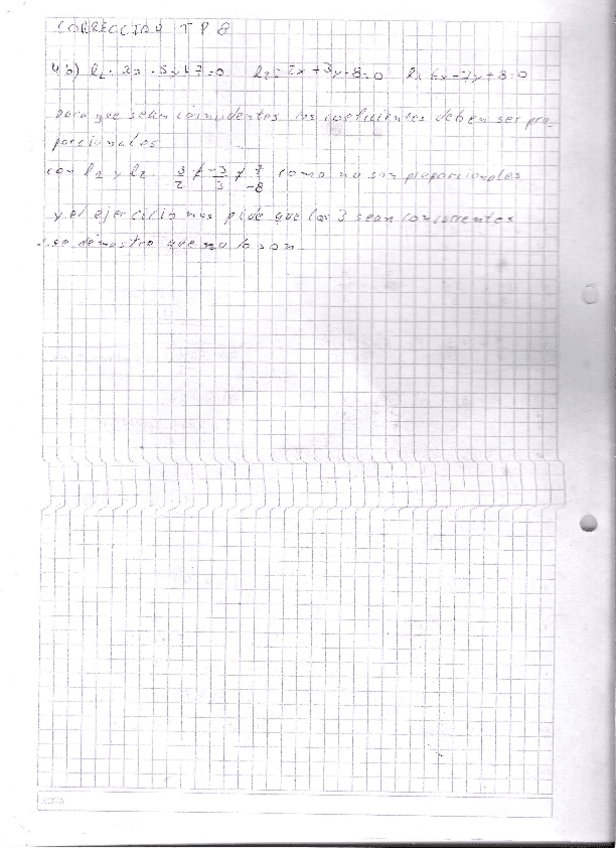 CORRECCION TP 8
4b) l1: 3x - 5y + 7 = 0 l2 = 2x + 3y - 8 = 0 l3 6x - 7y + 8 = 0
para que sean coincidentes los coeficientes deben ser pro-
porcionales
con l1 y l2. 3/2 ≠ -5/3 ≠ 7/-8 como no son proporcionales
y el ejercicio nos pide que las 3 sean concurrentes
se demostro que no lo son